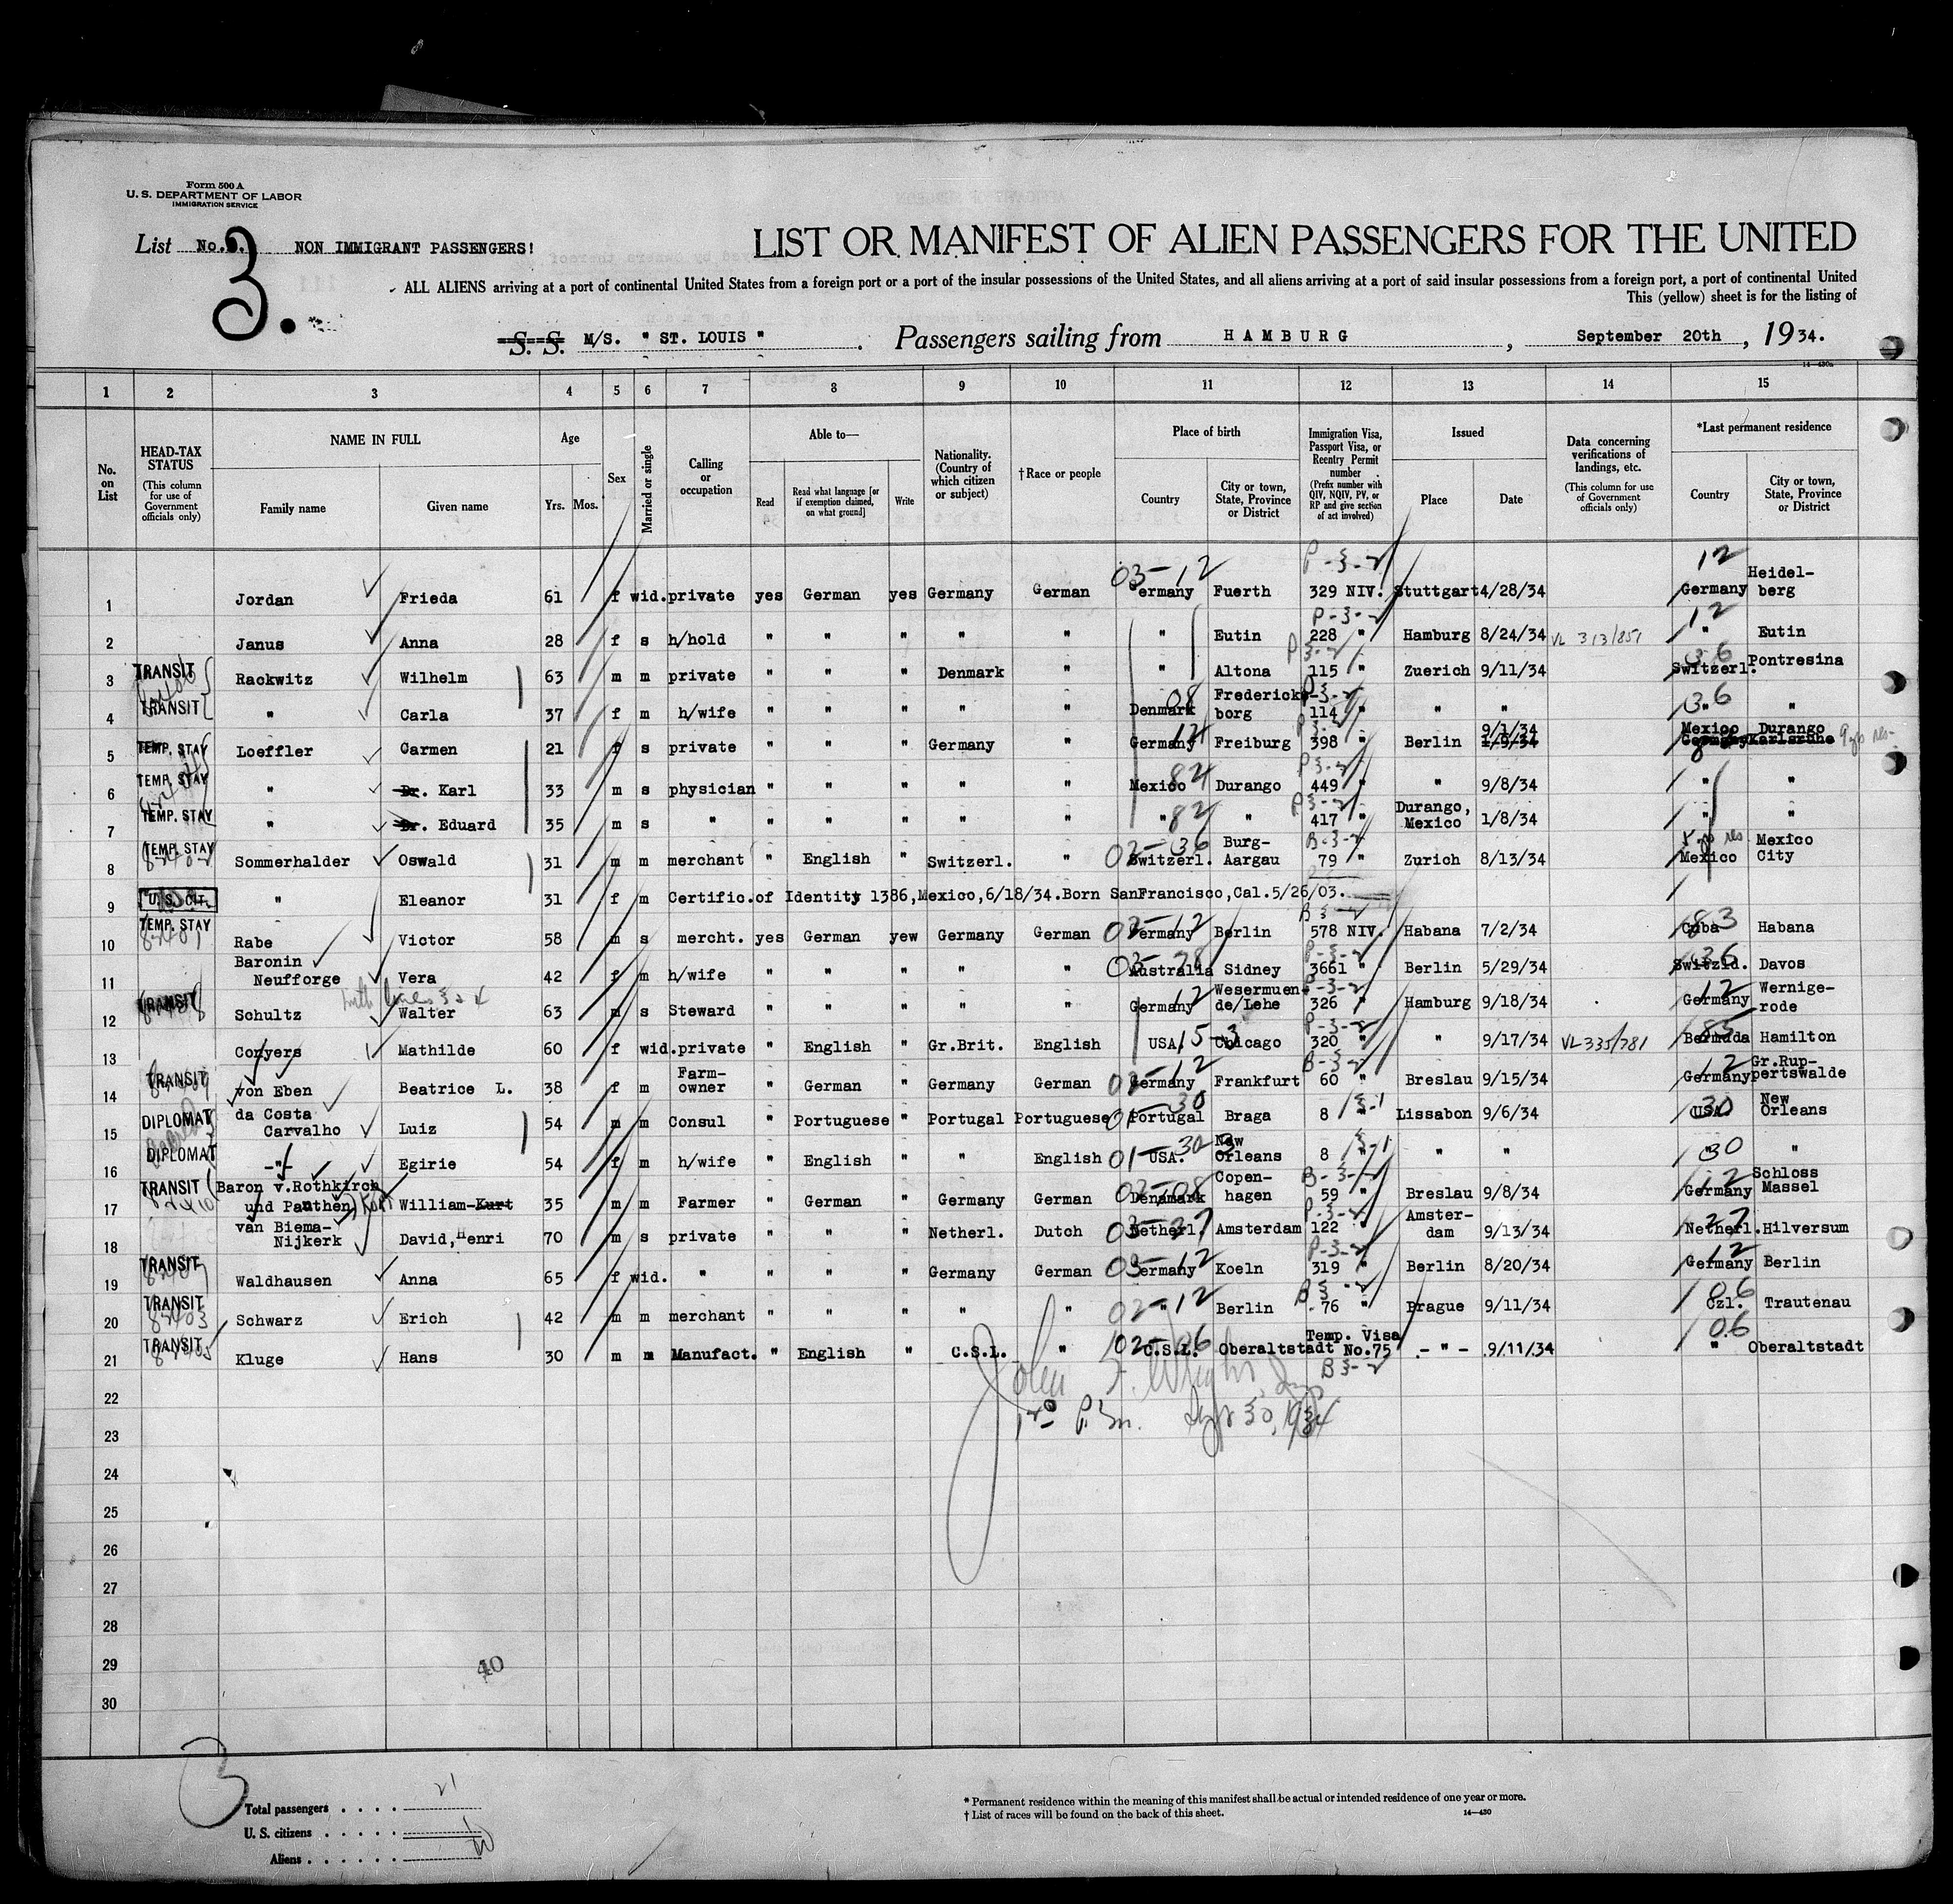 Form 500 A
U. S. DEPARTMENT OF LABOR
IMMIGRATION SERVICE
List No. 3. NON IMMIGRANT PASSENGERS!
LIST OR MANIFEST OF ALIEN PASSENGERS FOR THE UNITED
ALL ALIENS arriving at a port of continental United States from a foreign port or a port of the insular possessions of the United States, and all aliens arriving at a port of said insular possessions from a foreign port, a port of continental United
This (yellow) sheet is for the listing of
S. S. M/S. " ST. LOUIS " . Passengers sailing from HAMBURG , September 20th , 1934.
14—430a
1 2 3 4 5 6 7 8 9 10 11 12 13 14 15
No. on List
HEAD-TAX STATUS (This column for use of Government officials only)
NAME IN FULL Family name Given name
Age Yrs. Mos.
Sex
Married or single
Calling or occupation
Able to— Read Read what language [or if exemption claimed, on what ground] Write
Nationality. (Country of which citizen or subject)
†Race or people
Place of birth Country City or town, State, Province or District
Immigration Visa, Passport Visa, or Reentry Permit number (Prefix number with QIV, NQIV, PV, or RP and give section of act involved)
Issued Place Date
Data concerning verifications of landings, etc. (This column for use of Government officials only)
*Last permanent residence Country City or town, State, Province or District
03-12 P-3-2 12
1 Jordan Frieda 61 f wid. private yes German yes Germany German Germany Fuerth 329 NIV. Stuttgart 4/28/34 Germany Heidel-berg
P-3-2 12
2 Janus Anna 28 f s h/hold " " " " " " Eutin 228 " Hamburg 8/24/34 VL 313/851 " Eutin
P-3-2 36
3 TRANSIT Rackwitz Wilhelm 63 m m private " " " Denmark " " Altona 115 " Zuerich 9/11/34 Switzerl. Pontresina
08 P-3-2 36
4 TRANSIT " Carla 37 f m h/wife " " " " " Denmark Frederick-borg 114 " " " " "
12 9/1/34 Mexico Durango
5 TEMP. STAY Loeffler Carmen 21 f s private " " " Germany " Germany Freiburg 398 " Berlin 1/9/34 Germany Karlsruhe
82 P-3-2
6 TEMP. STAY " Dr. Karl 33 m s physician " " " " " Mexico Durango 449 " " 9/8/34 " "
82 P-3-2
7 TEMP. STAY " Dr. Eduard 35 m s " " " " " " " " 417 " Durango, Mexico 1/8/34 " "
02-36 B-3-2
8 TEMP. STAY 82402 Sommerhalder Oswald 31 m m merchant " English " Switzerl. " Switzerl. Burg-Aargau 79 " Zurich 8/13/34 Mexico Mexico City
9 U. S. CIT. " Eleanor 31 f m Certific.of Identity 1386,Mexico,6/18/34.Born SanFrancisco,Cal.5/26/03.
02-12 B 3-2 83
10 TEMP. STAY 82401 Rabe Victor 58 m s mercht. yes German yew Germany German Germany Berlin 578 NIV. Habana 7/2/34 Cuba Habana
P-3-2 36
11 Baronin Neufforge Vera 42 f m h/wife " " " " " Australia Sidney 3661 " Berlin 5/29/34 Switzld. Davos
with lines 3 & 4 12 P-3-2 12
12 TRANSIT Schultz Walter 63 m s Steward " " " " " Germany Wesermuen-de/Lehe 326 " Hamburg 9/18/34 Germany Wernige-rode
15-3 P-3-2 85
13 Conyers Mathilde 60 f wid. private " English " Gr.Brit. English USA. Chicago 320 " " 9/17/34 VL335/781 Bermuda Hamilton
02-12 B-3-2 12
14 TRANSIT von Eben Beatrice L. 38 f m Farm-owner " German " Germany German Germany Frankfurt 60 " Breslau 9/15/34 Germany Gr.Rup-pertswalde
01-30 3-1 30
15 DIPLOMAT da Costa Carvalho Luiz 54 m m Consul " Portuguese " Portugal Portuguese Portugal Braga 8 " Lissabon 9/6/34 USA. New Orleans
01-30 3-1 30
16 DIPLOMAT -"- Egirie 54 f m h/wife " English " " English USA. New Orleans 8 " " " "
02-08 B-3-2 12
17 TRANSIT 82410 Baron v.Rothkirch und Panthen Kurt William-Kurt 35 m m Farmer " German " Germany German Denamark Copen-hagen 59 " Breslau 9/8/34 Germany Schloss Massel
03-27 P-3-2 27
18 van Biema-Nijkerk David,Henri 70 m s private " " " Netherl. Dutch Netherl. Amsterdam 122 " Amster-dam 9/13/34 Netherl. Hilversum
03-12 P-3-2 12
19 TRANSIT 82407 Waldhausen Anna 65 f wid. " " " " Germany German Germany Koeln 319 " Berlin 8/20/34 Germany Berlin
02-12 B 3-2 06
20 TRANSIT 82403 Schwarz Erich 42 m m merchant " " " " " " Berlin 76 " Prague 9/11/34 Czl. Trautenau
02-06 06
21 TRANSIT 82405 Kluge Hans 30 m m Manufact. " English " C.S.L. " C.S.L. Oberaltstadt Temp. Visa No.75 -"- 9/11/34 " Oberaltstadt
B 3-2
John F. Wright, Insp
22
P.M. Sept 30, 1934
23
24
25
26
27
28
29 40
30
3
Total passengers . . . . 21
U. S. citizens . . . . . 1
Aliens . . . . . . 20
* Permanent residence within the meaning of this manifest shall be actual or intended residence of one year or more.
† List of races will be found on the back of this sheet. 14—430